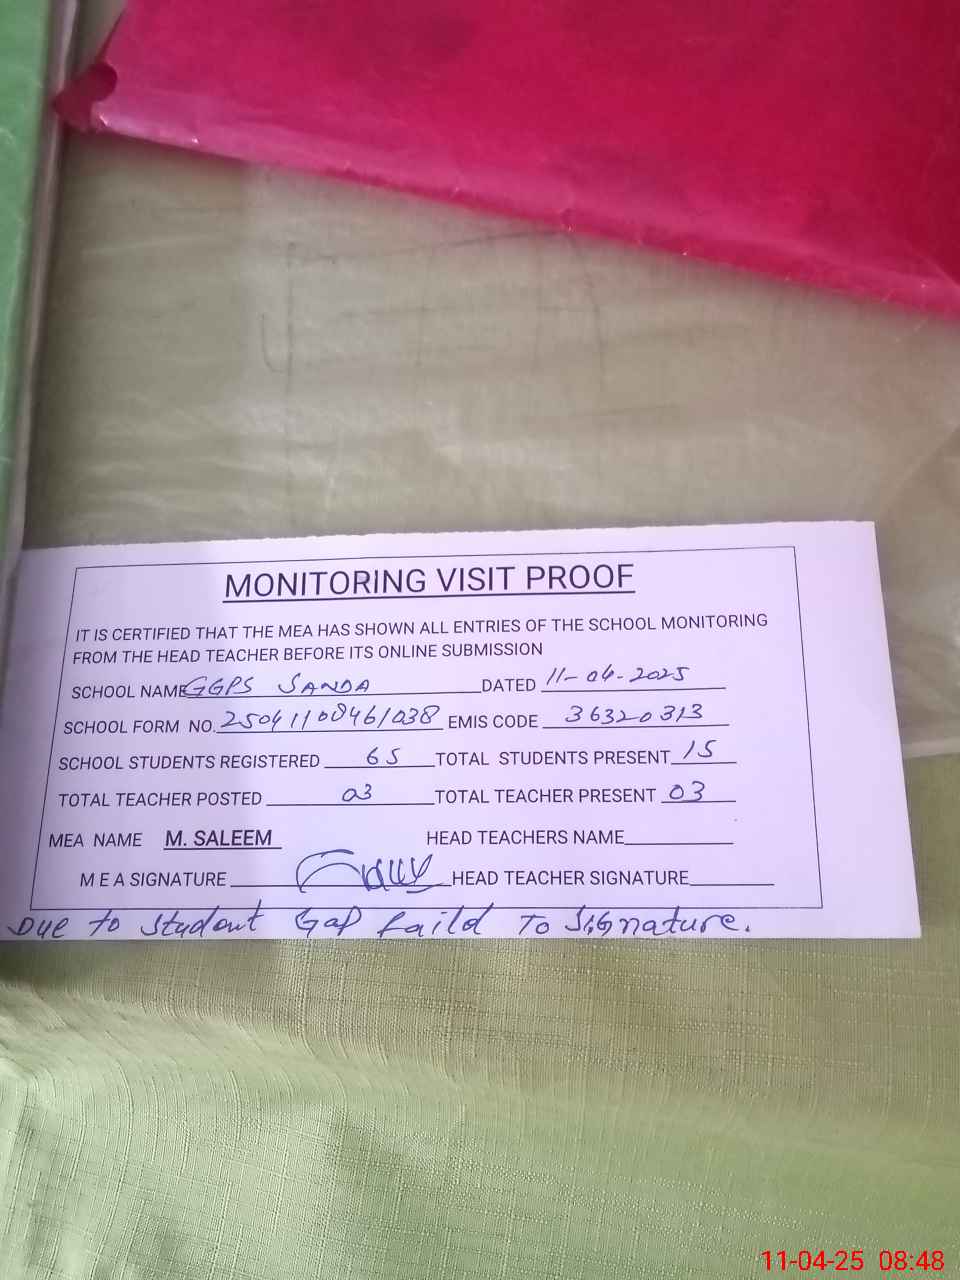 MONITORING VISIT PROOF
IT IS CERTIFIED THAT THE MEA HAS SHOWN ALL ENTRIES OF THE SCHOOL MONITORING
FROM THE HEAD TEACHER BEFORE ITS ONLINE SUBMISSION
SCHOOL NAME GGPS SANDA DATED 11-04-2025
SCHOOL FORM NO. 25041108461038 EMIS CODE 36320313
SCHOOL STUDENTS REGISTERED 65 TOTAL STUDENTS PRESENT 15
TOTAL TEACHER POSTED 03 TOTAL TEACHER PRESENT 03
MEA NAME M. SALEEM HEAD TEACHERS NAME
M E A SIGNATURE HEAD TEACHER SIGNATURE
Due to Student Gap faild To Signature.
11-04-25 08:48